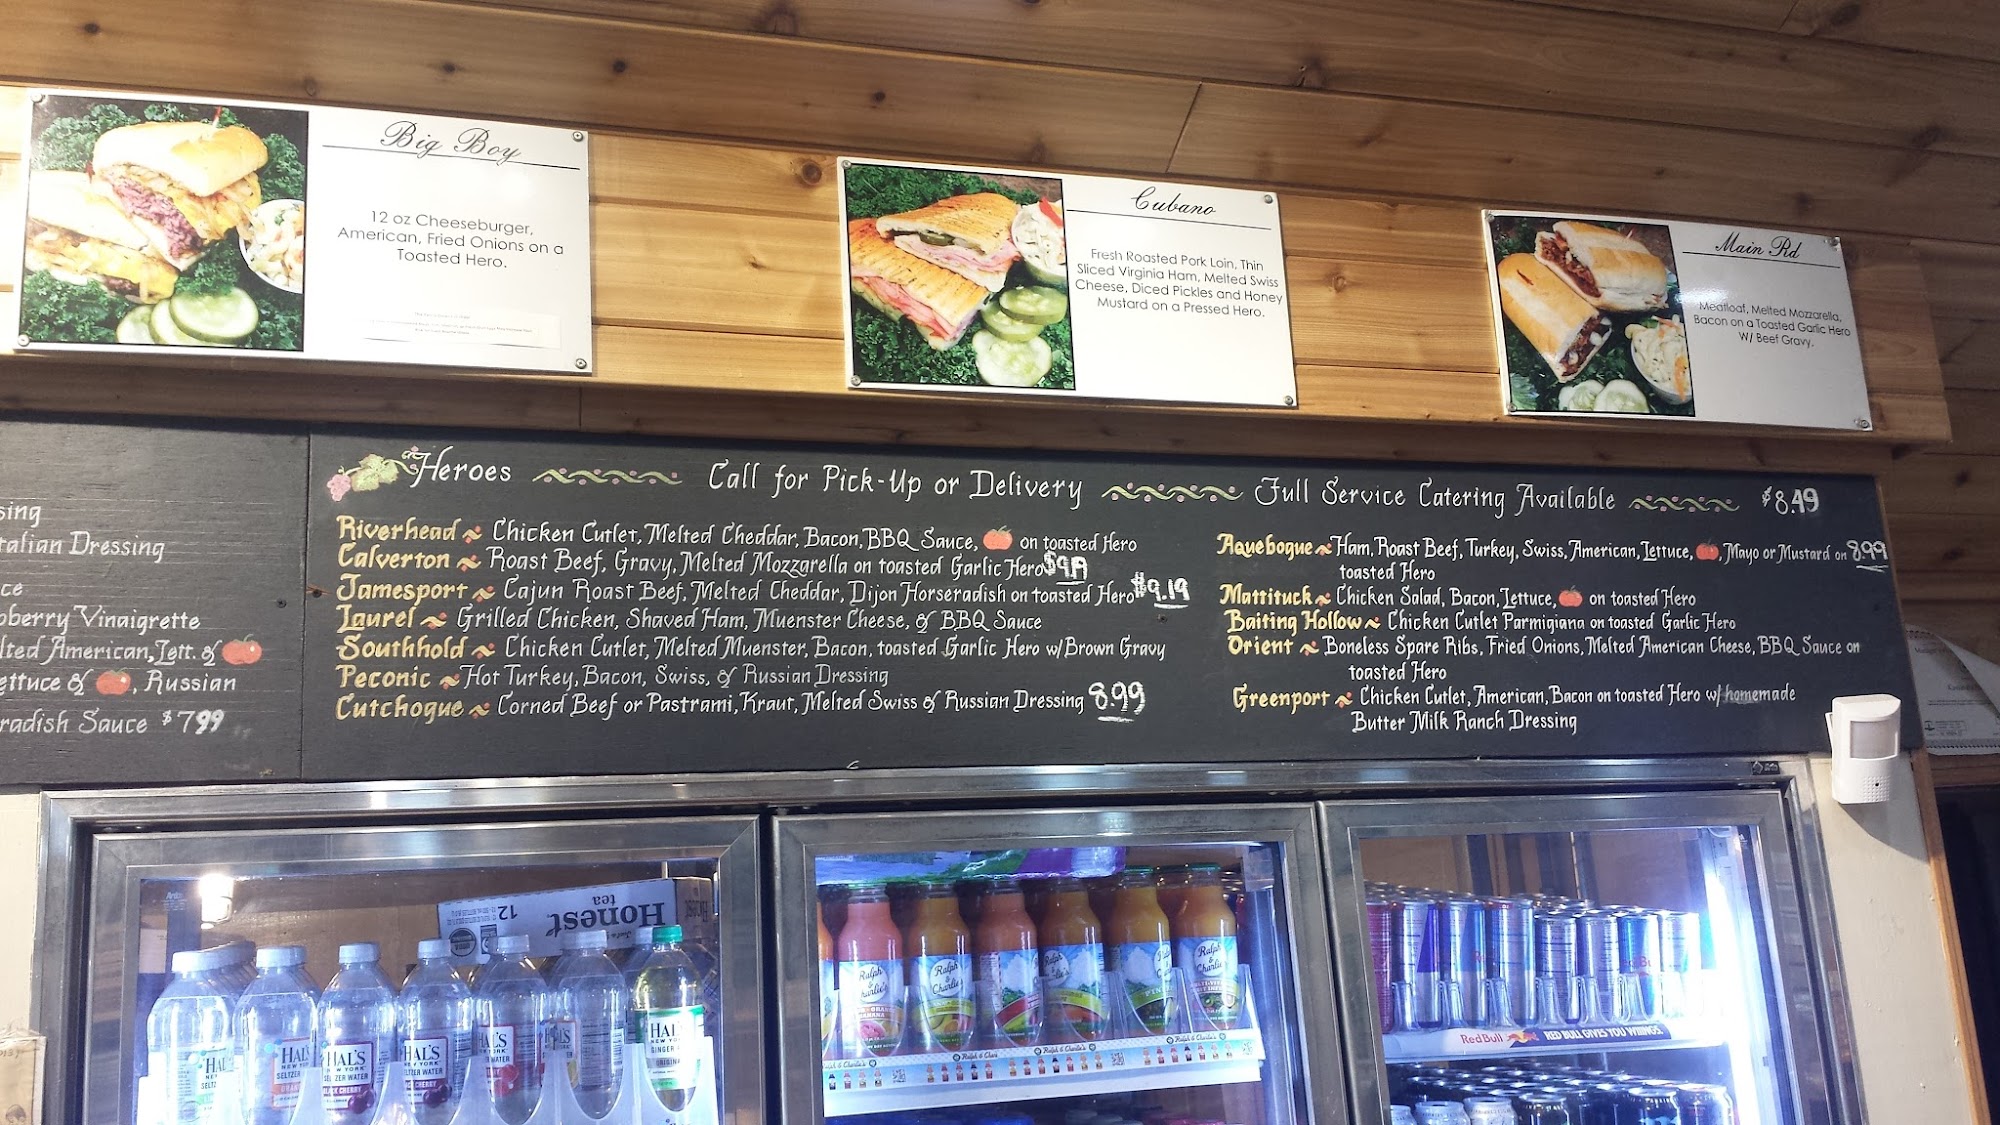 Big Boy
12 oz Cheeseburger,
American, Fried Onions on a
Toasted Hero.
Cubano
Fresh Roasted Pork Loin, Thin
Sliced Virginia Ham, Melted Swiss
Cheese, Diced Pickles and Honey
Mustard on a Pressed Hero.
Main Rd
Meatloaf, Melted Mozzarella,
Bacon on a Toasted Garlic Hero
W/ Beef Gravy.
Italian Dressing
Vinaigrette
American, Lett. &
&, Russian
Sauce $7.99
Heroes Call for Pick-Up or Delivery Full Service Catering Available $8.49
Riverhead ~ Chicken Cutlet, Melted Cheddar, Bacon, BBQ Sauce, on toasted Hero
Calverton ~ Roast Beef, Gravy, Melted Mozzarella on toasted Garlic Hero
Jamesport ~ Cajun Roast Beef, Melted Cheddar, Dijon Horseradish on toasted Hero $9.19
Laurel ~ Grilled Chicken, Shaved Ham, Muenster Cheese, & BBQ Sauce
Southhold ~ Chicken Cutlet, Melted Muenster, Bacon, toasted Garlic Hero w/ Brown Gravy
Peconic ~ Hot Turkey, Bacon, Swiss, & Russian Dressing
Cutchogue ~ Corned Beef or Pastrami, Kraut, Melted Swiss & Russian Dressing 8.99
Aquebogue ~ Ham, Roast Beef, Turkey, Swiss, American, Lettuce, , Mayo or Mustard on 8.99
toasted Hero
Mattituck ~ Chicken Salad, Bacon, Lettuce, on toasted Hero
Baiting Hollow ~ Chicken Cutlet Parmigiana on toasted Garlic Hero
Orient ~ Boneless Spare Ribs, Fried Onions, Melted American Cheese, BBQ Sauce on
toasted Hero
Greenport ~ Chicken Cutlet, American, Bacon on toasted Hero w/ homemade
Butter Milk Ranch Dressing
Honest
tea
12
HAL'S
NEW YORK
SELTZER WATER
BLACK CHERRY
HAL'S
NEW YORK
GINGER
ORIGINAL
Ralph & Charlie's
Ralph & Charlie's
Red Bull RED BULL GIVES YOU WIIINGS.